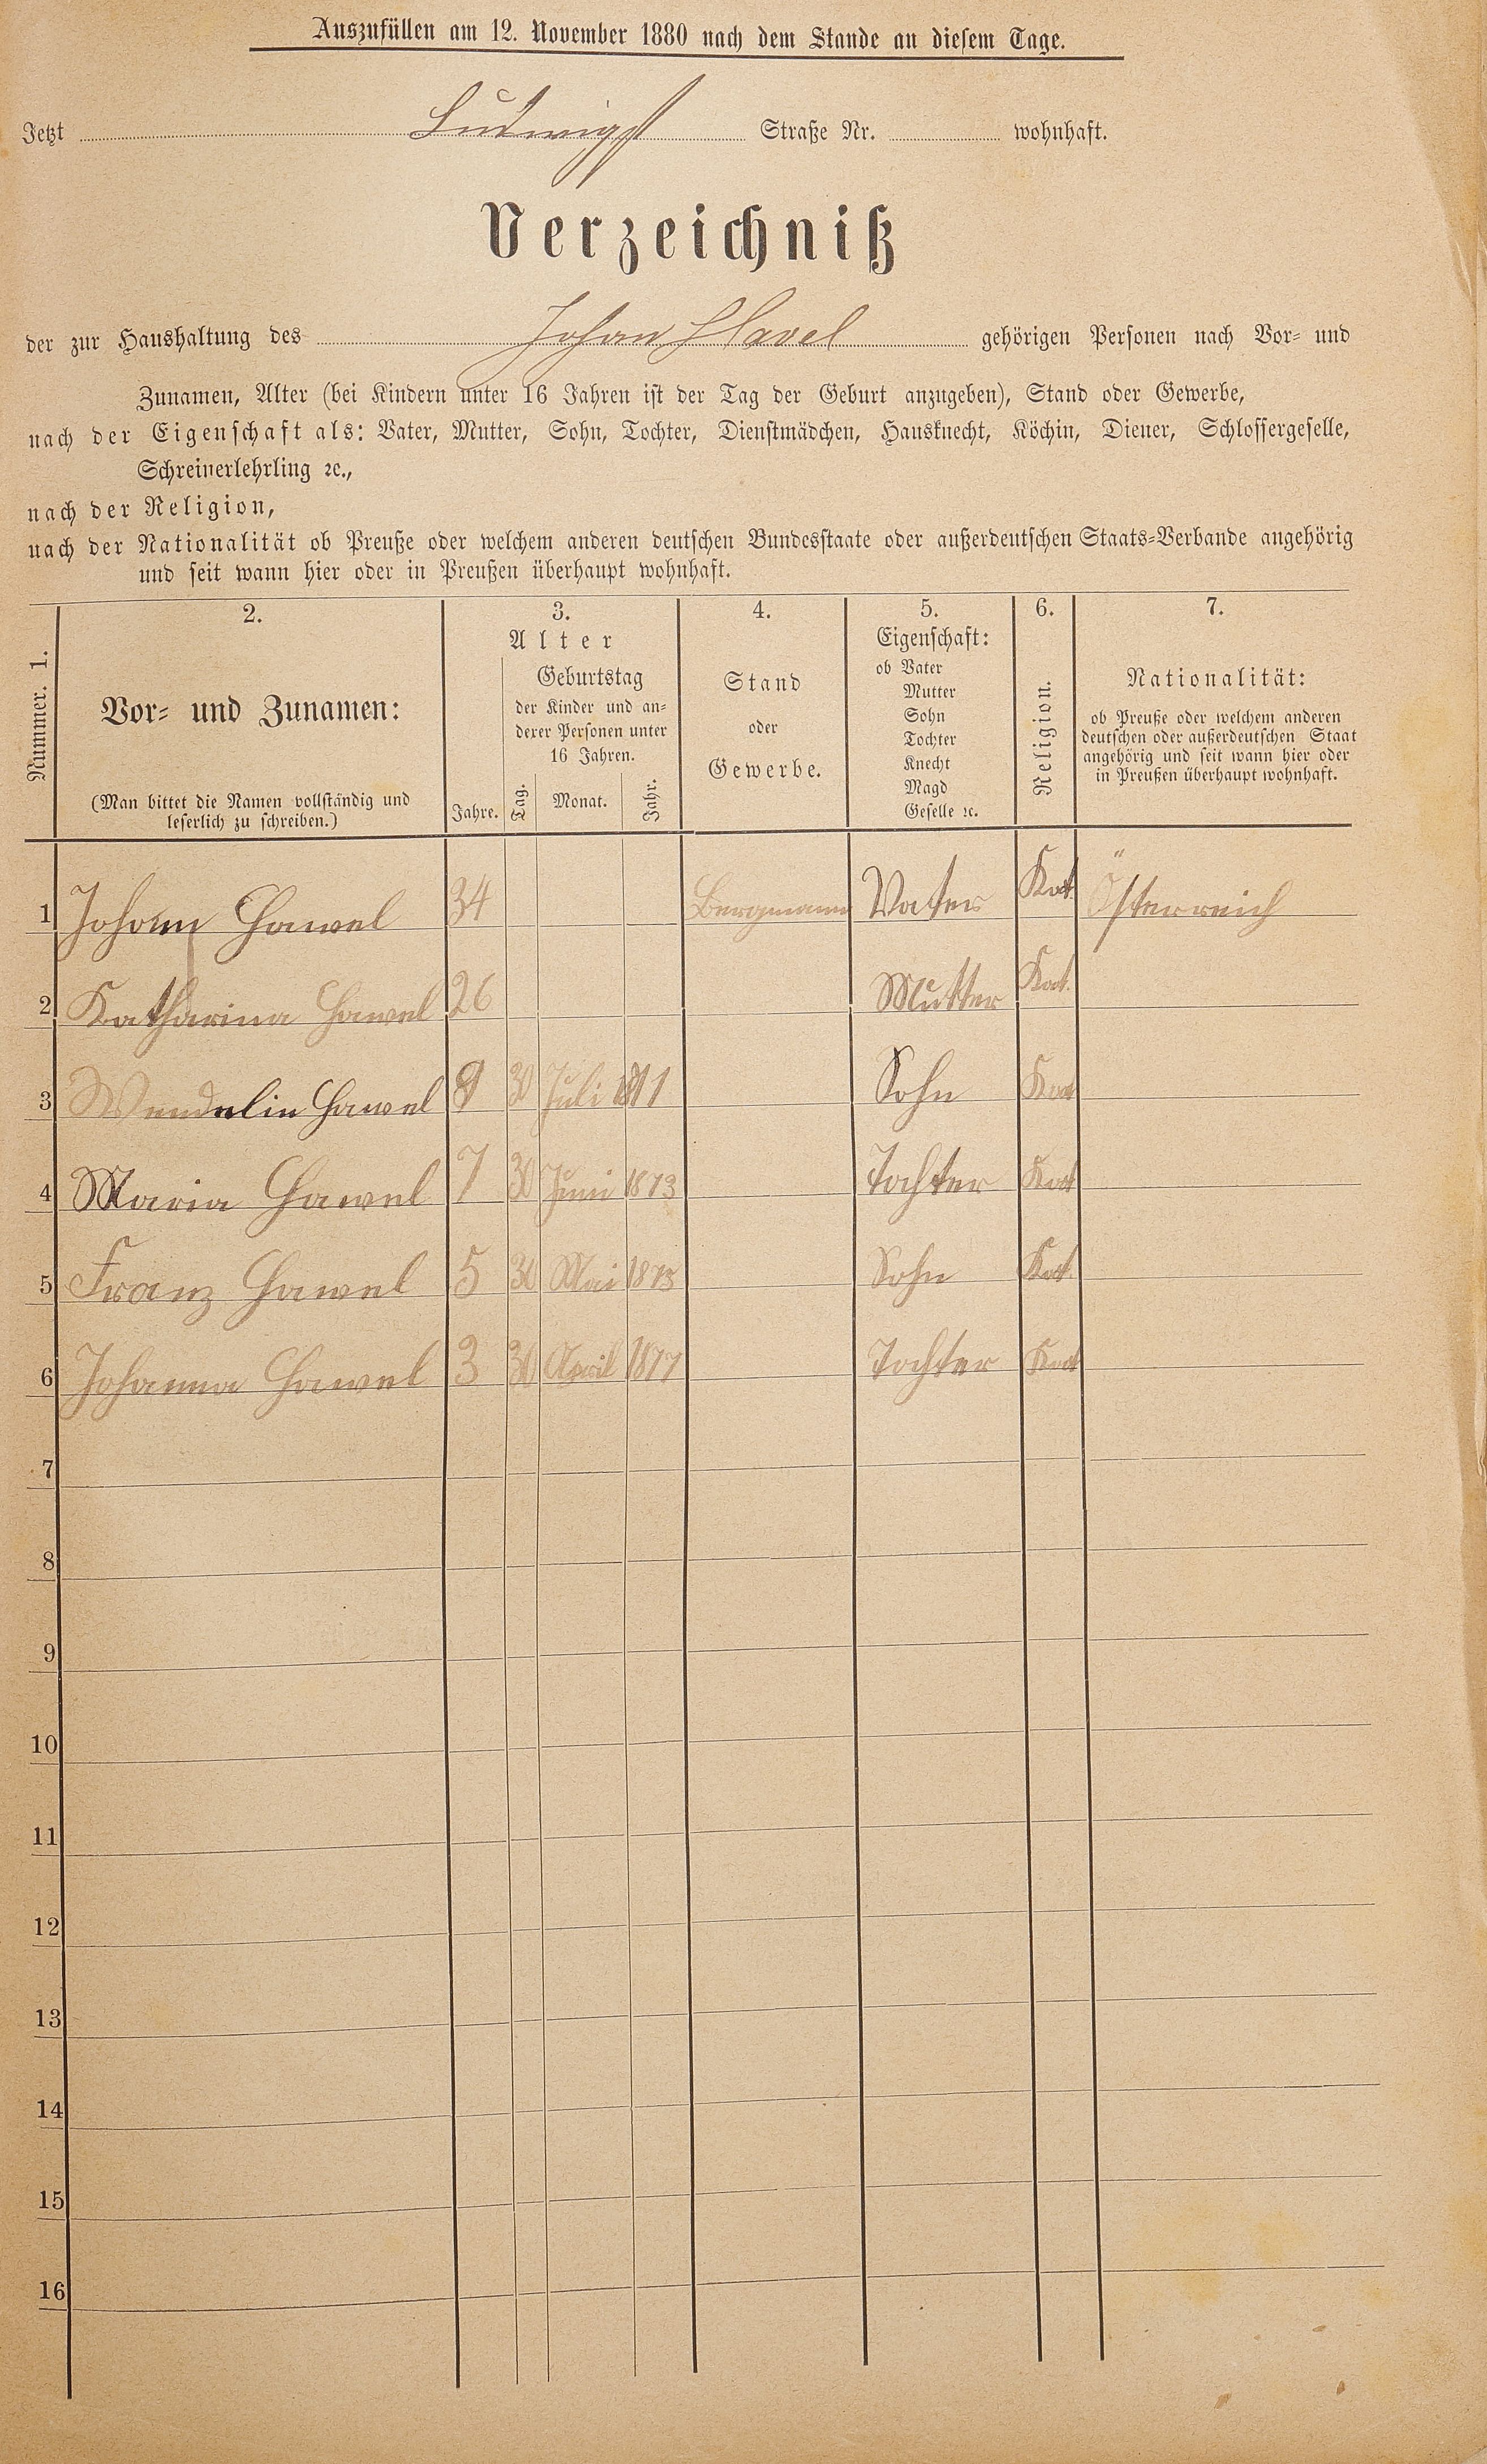 Auszufüllen am 12. November 1880 nach dem Stande an diesem Tage.
Jetzt Ludwigst Straße Nr. wohnhaft.
Verzeichniß
der zur Haushaltung des Johan Havel gehörigen Personen nach Vor- und
Zunamen, Alter (bei Kindern unter 16 Jahren ist der Tag der Geburt anzugeben), Stand oder Gewerbe,
nach der Eigenschaft als: Vater, Mutter, Sohn, Tochter, Dienstmädchen, Hausknecht, Köchin, Diener, Schlossergeselle,
Schreinerlehrling ꝛc.,
nach der Religion,
nach der Nationalität ob Preuße oder welchem anderen deutschen Bundesstaate oder außerdeutschen Staats-Verbande angehörig
und seit wann hier oder in Preußen überhaupt wohnhaft.
Nummer. 1.
2.
Vor- und Zunamen:
(Man bittet die Namen vollständig und
leserlich zu schreiben.)
3.
Alter
Jahre.
Geburtstag
der Kinder und an-
derer Personen unter
16 Jahren.
Tag. Monat. Jahr.
4.
Stand
oder
Gewerbe.
5.
Eigenschaft:
ob Vater
Mutter
Sohn
Tochter
Knecht
Magd
Geselle ꝛc.
6.
Religion.
7.
Nationalität:
ob Preuße oder welchem anderen
deutschen oder außerdeutschen Staat
angehörig und seit wann hier oder
in Preußen überhaupt wohnhaft.
1 Johann Hawel 34 Bergmann Vater Kat. Österreich
2 Katharina Hawel 26 Mutter Kat.
3 Wendelin Hawel 9 30 Juli 1871 Sohn Kat
4 Maria Hawel 7 30 Juni 1873 Tochter Kat
5 Franz Hawel 5 30 Mai 1875 Sohn Kat.
6 Johanna Hawel 3 30 April 1877 Tochter Kat
7
8
9
10
11
12
13
14
15
16